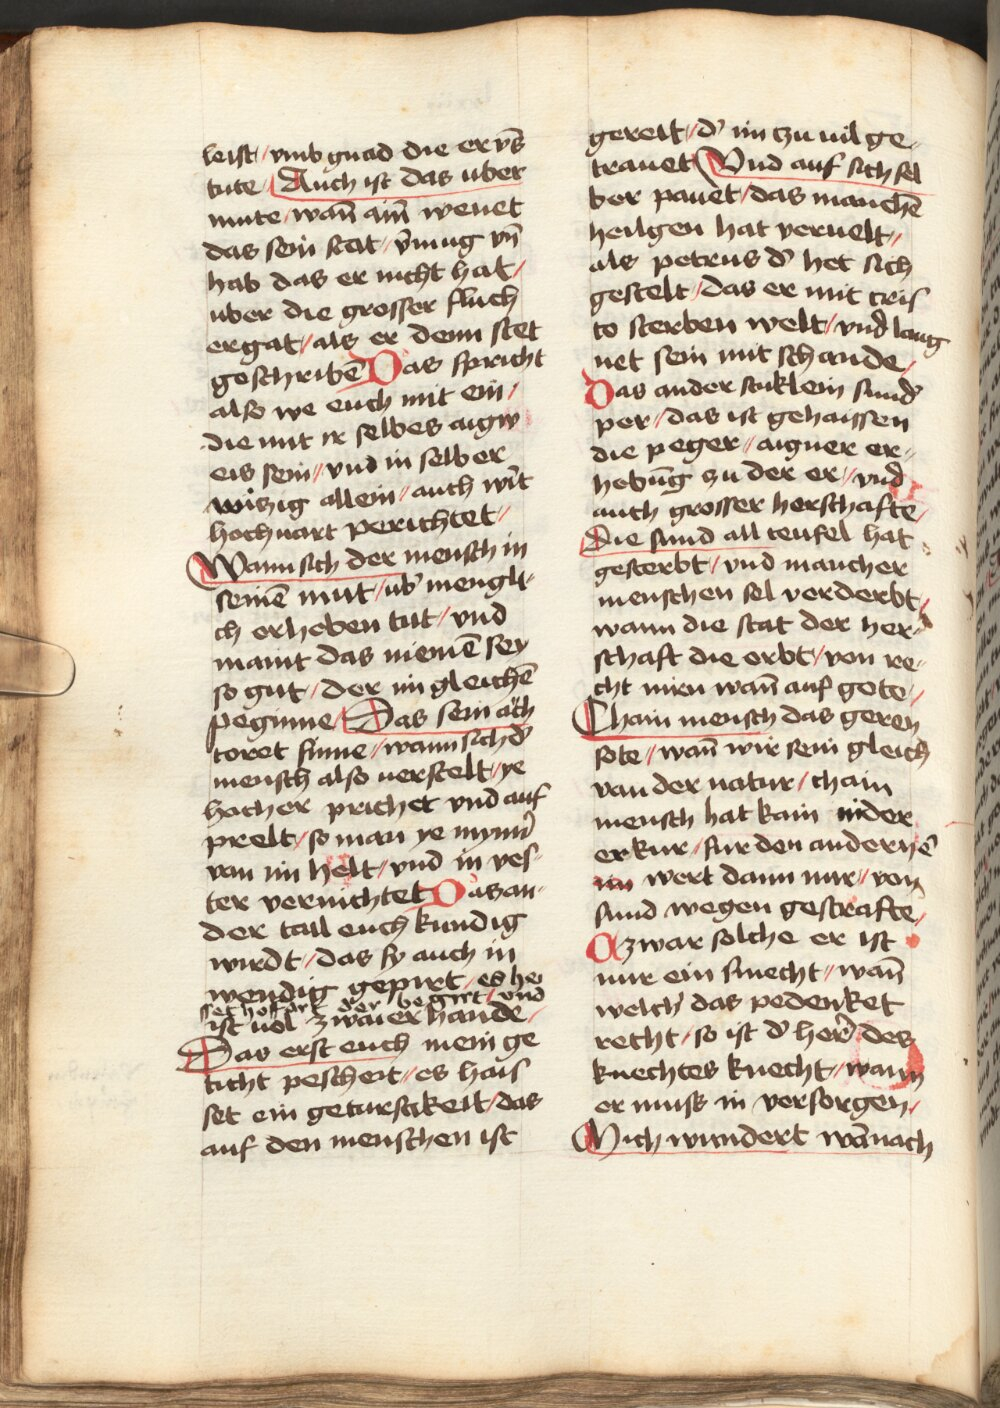 leist / vmb gnad die er vns̄
tute / Auch ist das uber
mute / wan̄ ain̄ wenet
das sein stat / v̄nnug vn̄
hab das er nicht hat /
uber die grosser fluch
ergat / als er denn stet
geschribē Das spricht
also we euch mit ein /
die mit ir selbes augn̄
eis sein // vnd in selber
wiczig allein / auch wirt
hochuart perichtet //
Wann sich der mensch in
seinē mut / ub̄ mengli-
ch erheben tut / vnd
maint das niemē sey
so gut / der im gleichē
peginne / Das sein auch
toret sinne / wann sich d̄
mensch also verstelt / ye
hocher prichet vnd auf
prelt / so man ye mynn̄
van im helt / vnd in ves-
ter vernichtet Das an-
der tail euch kundig
wirdt / das sy auch in
wendig gepirt / es hei
sset hoffart der begirt / vnd
ist uol zwaier hande /
Das erst euch mein ge
ticht peschert // es hais
set ein geturstikeit / das
auf den menschen ist
gereit / d̄ im tzu uil ge-
trauet Vnd auf sich sel
ber pauet / das manchē
heilgen hat veruelt //
als petrus d̄ het sich
gestelt / das er mit cris
to sterben welt / vnd laug
net sein mit schande /
Das ander stuklein sund̄
per / das ist gehaissen
die peger // aigner er-
hebūg zu der er / vnd
auch grosser herschafte /
Die sund all teufel hat
gesterbt / vnd mancher
menschen sel verderbt /
wann die stat der her-
schaft die erbt / von re-
cht nien wan̄ auf gote /
Chain mensch das geren
sote // wan̄ wir sein gleich
van der natur / chain
mensch hat kain nider
erkur / fur den andern ē
im wert dann nur / von
sund wegen gestrafte /
Azwar solche er ist
nur ein smecht // wan̄
welch̄ das pedenket
recht / so ist d̄ her̄ des
knechtes knecht / wann
er muss in versorgen /
Mich wundert wan̄ nach